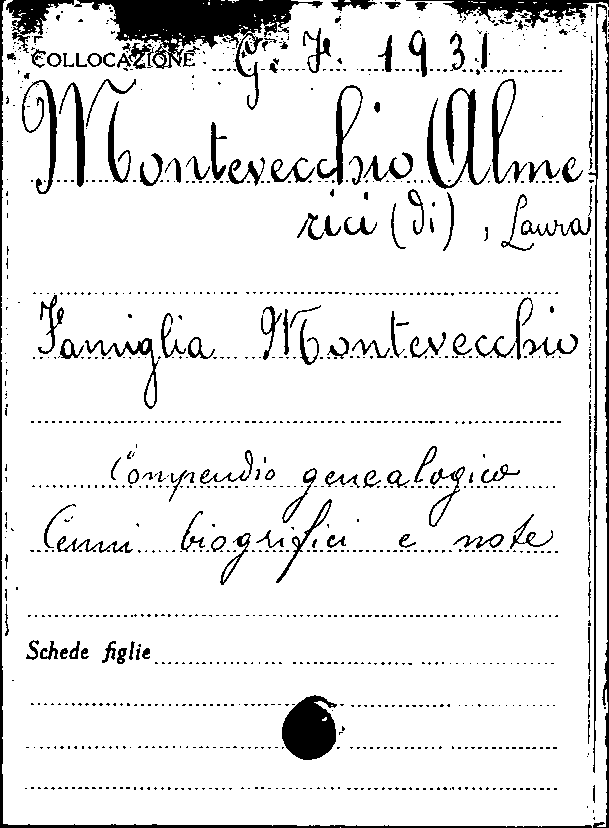 COLLOCAZIONE G. F. 1931
Montevecchio Alme
rici (di), Laura
Famiglia Montevecchio
Compendio genealogico
Cenni biografici e note
Schede figlie